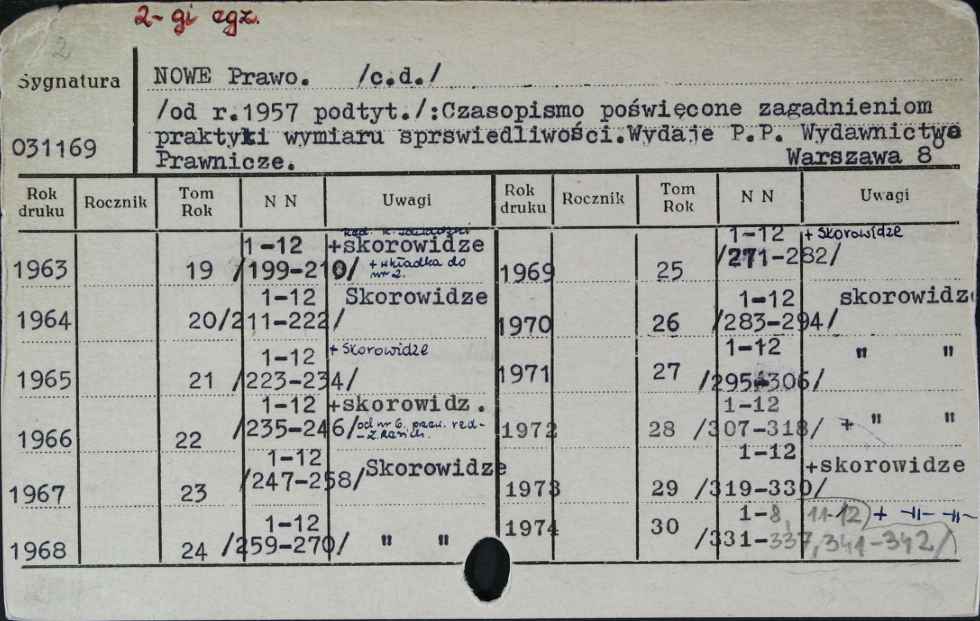 2-gi egz.
2
Sygnatura
031169
NOWE Prawo. /c.d./
/od r.1957 podtyt./:Czasopismo poświęcone zagadnieniom
praktyki wymiaru sprswiedliwości.Wydaje P.P. Wydawnictwo
Prawnicze. Warszawa 8°
Rok druku Rocznik Tom Rok N N Uwagi Rok druku Rocznik Tom Rok N N Uwagi
1963 19 1-12 /199-210/ +skorowidze + wkładka do nr 2.
1964 20 1-12 /211-222/ Skorowidze
1965 21 1-12 /223-234/ + Skorowidze
1966 22 1-12 /235-246/ +skorowidz. od nr 6. red.-
1967 23 1-12 /247-258/ Skorowidze
1968 24 1-12 /259-270/ " "
1969 25 1-12 /271-282/ + Skorowidze
1970 26 1-12 /283-294/ skorowidz
1971 27 1-12 /295-306/ " "
1972 28 1-12 /307-318/ + " "
1973 29 1-12 /319-330/ +skorowidze
1974 30 1-8, 11-12) + -||- -||-
/331-337, 341-342/